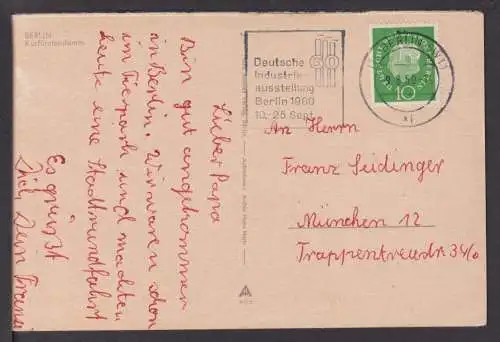 BERLIN
Kurfürstendamm
Lieber Papa
Bin gut angekommen
in Berlin. Wir waren schon
im Tierpark und machten
heute eine Stadtrundfahrt
Es grüßt
Dich, Dein Franzi
60
Deutsche
Industrie-
ausstellung
Berlin 1960
10.-25. Sept.
BERLIN
10
An Herrn
Franz Seidinger
München 12
Trappentreustr.